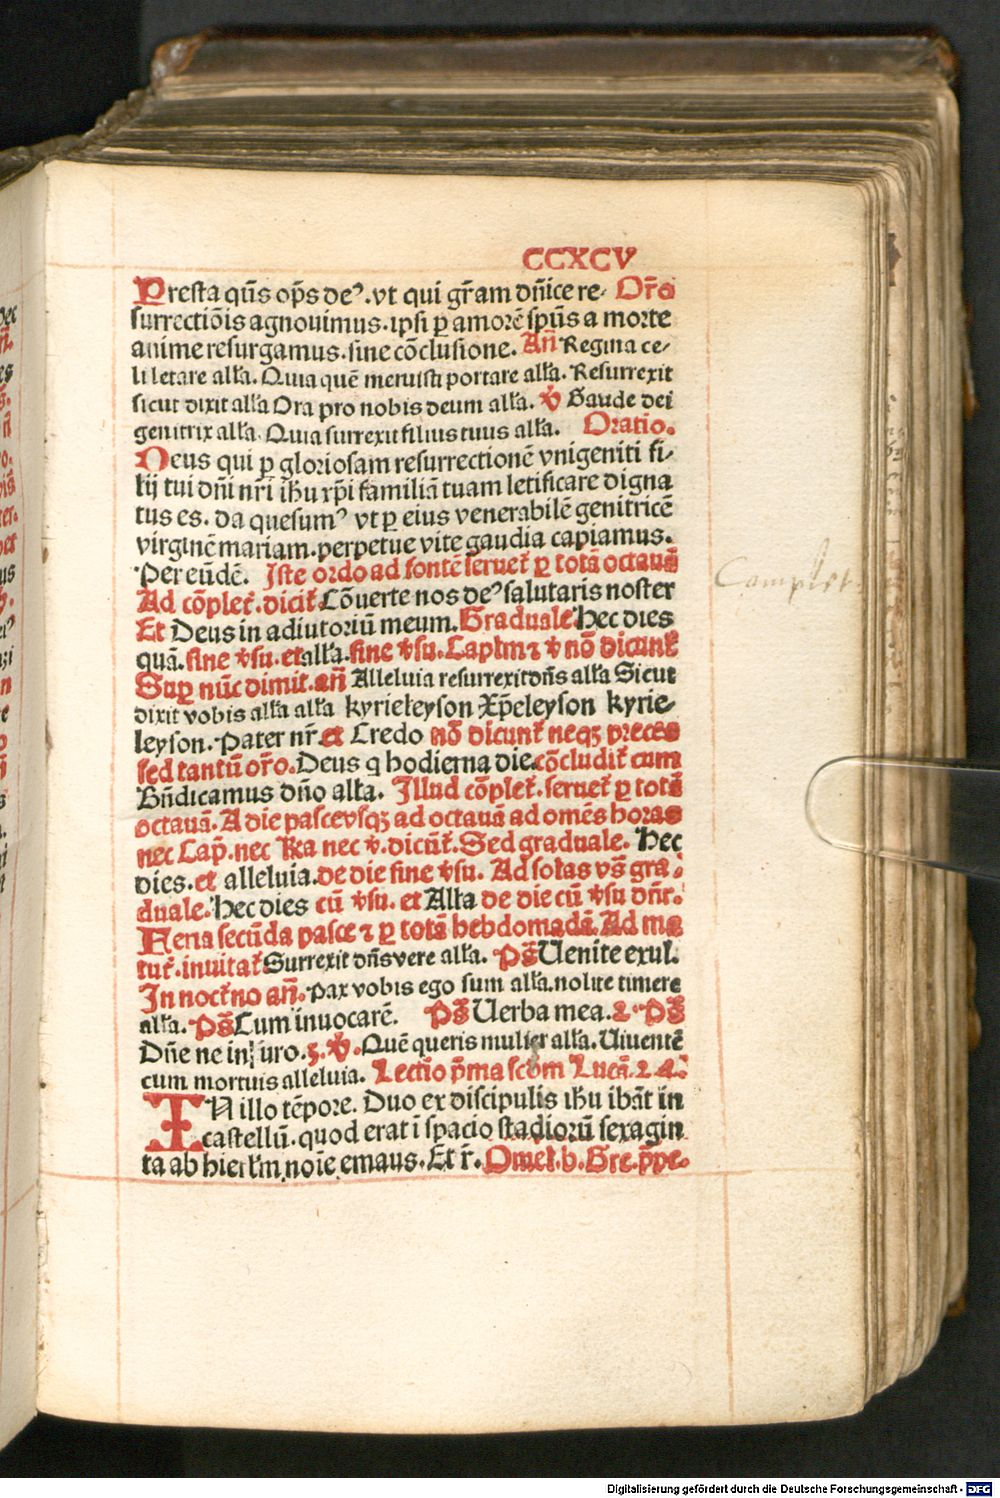 CCXCV
Presta qūs op̄s deꝰ. vt qui gr̄am dn̄ice re- Or̄o
surrectiōis agnouimus. ipsi ꝑ amorē sp̄us a morte
anime resurgamus. sine cōclusione. An̄ Regina ce-
li letare alła. Quia quē meruisti portare alła. Resurrexit
sicut dixit alła Ora pro nobis deum alła. ℣ Gaude dei
genitrix alła. Quia surrexit filius tuus alła. Oratio.
Deus qui ꝑ gloriosam resurrectionē vnigeniti fi-
lij tui dn̄i nr̄i ih̄u xp̄i familiā tuam letificare digna
tus es. da quesumꝰ vt ꝑ eius venerabilē genitricē
virginē mariam. perpetue vite gaudia capiamus.
Per eūdē. Iste ordo ad fontē seruet᷑ ꝑ totā octauā
Ad cōplet᷑. dicit᷑ Cōuerte nos deꝰ salutaris noster
Et Deus in adiutoriū meum. Graduale Hec dies
quā. sine v̄su. et alła. sine v̄su. Capłm ⁊ ℣ nō dicunt᷑
Suꝑ nūc dimit. an̄ Alleluia resurrexit dn̄s alła Sicut
dixit vobis alła alła kyrieleyson Xp̄eleyson kyrie-
leyson. Pater nr̄ et Credo nō dicunt᷑ neqꝫ preces
sed tantū or̄o. Deus q hodierna die. cōcludit᷑ cum
Bn̄dicamus dn̄o alła. Illud cōplet᷑. seruet᷑ ꝑ totā
octauā. A die pasce vsqꝫ ad octauā ad omēs horas
nec Cap̄. nec ꝶa nec ℣. dicūt᷑. Sed graduale. Hec
dies. et alleluia. de die sine v̄su. Ad solas vs̄ gra-
duale. Hec dies cū v̄su. et Alła de die cū v̄su dn̄r.
Feria secūda pasce ⁊ ꝑ totā hebdomadā. Ad ma
tut᷑. inuitat᷑ Surrexit dn̄s vere alła. Ps̄ Uenite exul.
In noct᷑no an̄. Pax vobis ego sum alła. nolite timere
alła. Ps̄ Cum inuocarē. Ps̄ Uerba mea. 2. Ps̄
Dn̄e ne in furo. 3. ℣. Quē queris mulier alła. Uiuentē
cum mortuis alleluia. Lectio p̄ma scd̄m Lucā. 24.
IN illo tēpore. Duo ex discipulis ih̄u ibāt in
castellū. quod erat ī spacio stadiorū sexagin
ta ab hierłm noīe emaus. Et r̄. Omeł. b. Gre. p̄pe.
Complet.
Digitalisierung gefördert durch die Deutsche Forschungsgemeinschaft - DFG